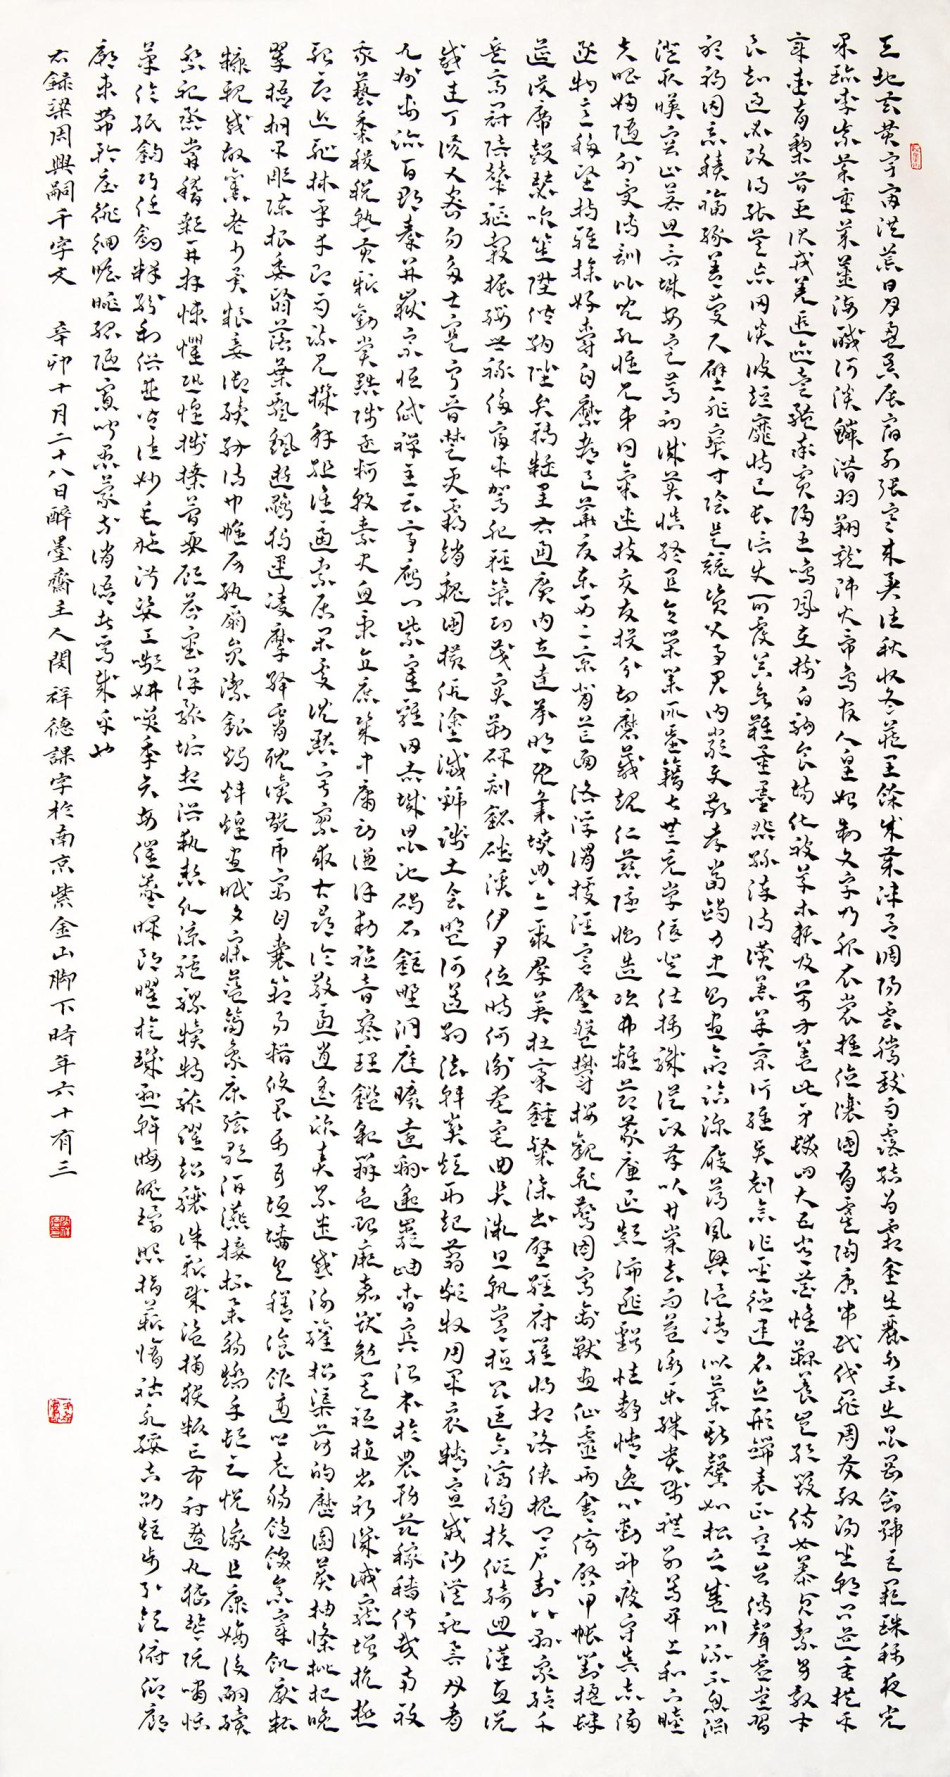 天地玄黃宇宙洪荒日月盈昃辰宿列張寒來暑往秋收冬藏閏餘成歲律呂調陽雲騰致雨露結為霜金生麗水玉出崑岡劍號巨闕珠稱夜光
果珍李柰菜重芥薑海鹹河淡鱗潛羽翔龍師火帝鳥官人皇始制文字乃服衣裳推位讓國有虞陶唐弔民伐罪周發殷湯坐朝問道垂拱平
章愛育黎首臣伏戎羌遐邇壹體率賓歸王鳴鳳在樹白駒食場化被草木賴及萬方蓋此身髮四大五常恭惟鞠養豈敢毀傷女慕貞絜男效才
良知過必改得能莫忘罔談彼短靡恃己長信使可覆器欲難量墨悲絲染詩讚羔羊景行維賢剋念作聖德建名立形端表正空谷傳聲虛堂習
聽禍因惡積福緣善慶尺璧非寶寸陰是競資父事君曰嚴與敬孝當竭力忠則盡命臨深履薄夙興溫凊似蘭斯馨如松之盛川流不息淵
澄取映容止若思言辭安定篤初誠美慎終宜令榮業所基籍甚無竟學優登仕攝職從政存以甘棠去而益詠樂殊貴賤禮別尊卑上和下睦
夫唱婦隨外受傅訓兒孔懷兄弟同氣連枝交友投分切磨箴規仁慈隱惻造次弗離節義廉退顛沛匪虧性靜情逸心動神疲守真志滿
逐物意移堅持雅操好爵自縻都邑華夏東西二京背邙面洛浮渭據涇宮殿盤鬱樓觀飛驚圖寫禽獸畫仙靈丙舍傍啟甲帳對楹肆
筵設席鼓瑟吹笙陞階納陛弁轉疑星右通廣內左達承明既集墳典亦聚群英杜稾鍾隸漆書壁經府羅將相路俠槐卿戶封八縣家給千
兵高冠陪輦驅轂振纓世祿侈富車駕肥輕策功茂實勒碑刻銘磻溪伊尹佐時阿衡奄宅曲阜微旦孰營桓公匡合濟弱扶傾綺迴漢惠說
感武丁俊乂密勿多士寔寧晉楚更霸趙魏困橫假塗滅虢踐土會盟何遵約法韓弊煩刑起翦頗牧用軍最精宣威沙漠馳譽丹青
九州禹跡百郡秦并嶽宗恆岱禪主云亭雁門紫塞雞田赤城昆池碣石鉅野洞庭曠遠綿邈巖岫杳冥治本於農務茲稼穡俶載南畝
我藝黍稷稅熟貢新勸賞黜陟孟軻敦素史魚秉直庶幾中庸勞謙謹敕聆音察理鑑貌辨色貽厥嘉猷勉其祗植省躬譏誡寵增抗極
殆辱近恥林皋幸即兩疏見機解組誰逼索居閑處沉默寂寥求古尋論散慮逍遙欣奏累遣慼謝歡招渠荷的歷園莽抽條枇杷晚
翠梧桐早彫陳根委翳落葉飄颻遊鵾獨運凌摩絳霄耽讀翫市寓目囊箱易輶攸畏屬耳垣牆具膳飡飯適口充腸飽飫烹宰飢厭糟
糠親戚故舊老少異糧妾御績紡侍巾帷房紈扇員潔銀燭煒煌晝眠夕寐藍筍象床弦歌酒讌接杯舉觴矯手頓足悅豫且康嫡後嗣續
祭祀蒸嘗稽顙再拜悚懼恐惶牋牒簡要顧答審詳骸垢想浴執熱願涼驢騾犢特駭躍超驤誅斬賊盜捕獲叛亡布射遼丸嵇琴阮嘯恬
筆倫紙鈞巧任鈞釋紛利俗並皆佳妙毛施淑姿工顰妍笑年矢每催羲暉朗曜璇璣懸斡晦魄環照指薪脩祜永綏吉劭矩步引領俯仰廊
廟束帶矜莊徘徊瞻眺孤陋寡聞愚蒙等誚謂語助者焉哉乎也
右録梁周興嗣千字文 辛卯十月二十八日醉墨齋主人閔祥德課字於南京紫金山脚下時年六十有三